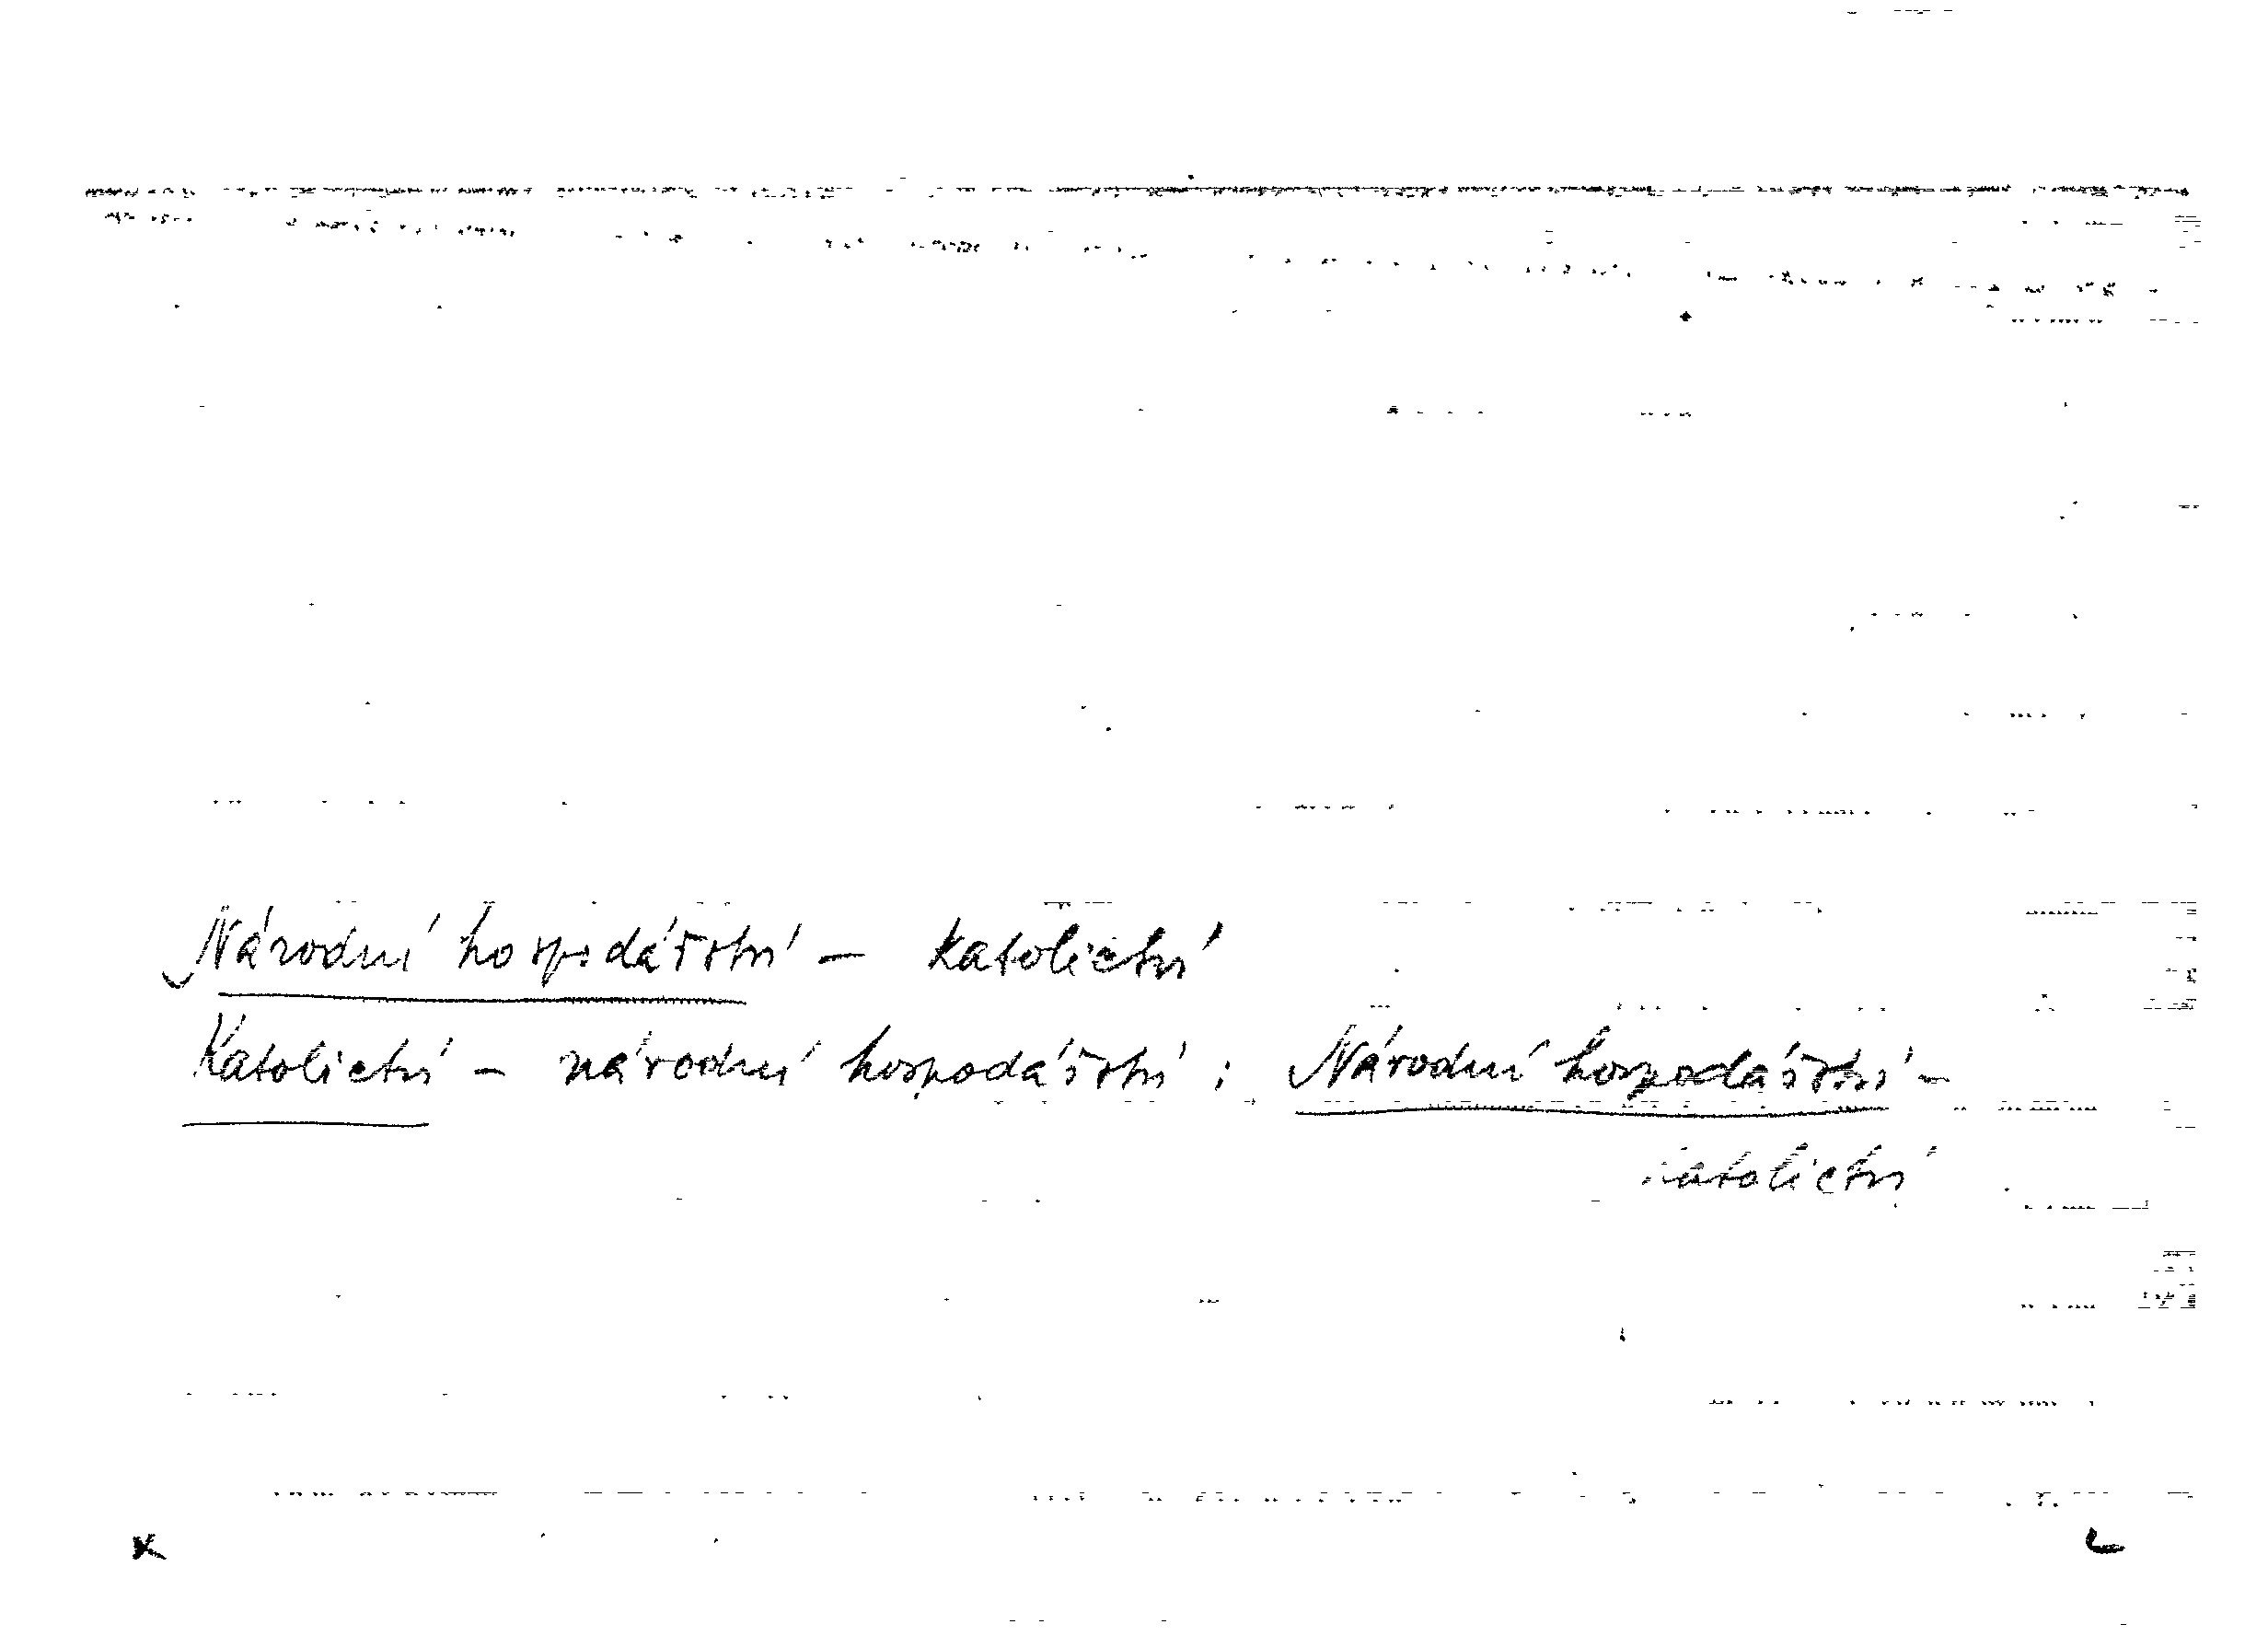 Národní hospodářství – katolictví
Katolictví – národní hospodářství : Národní hospodářství –
katolictví